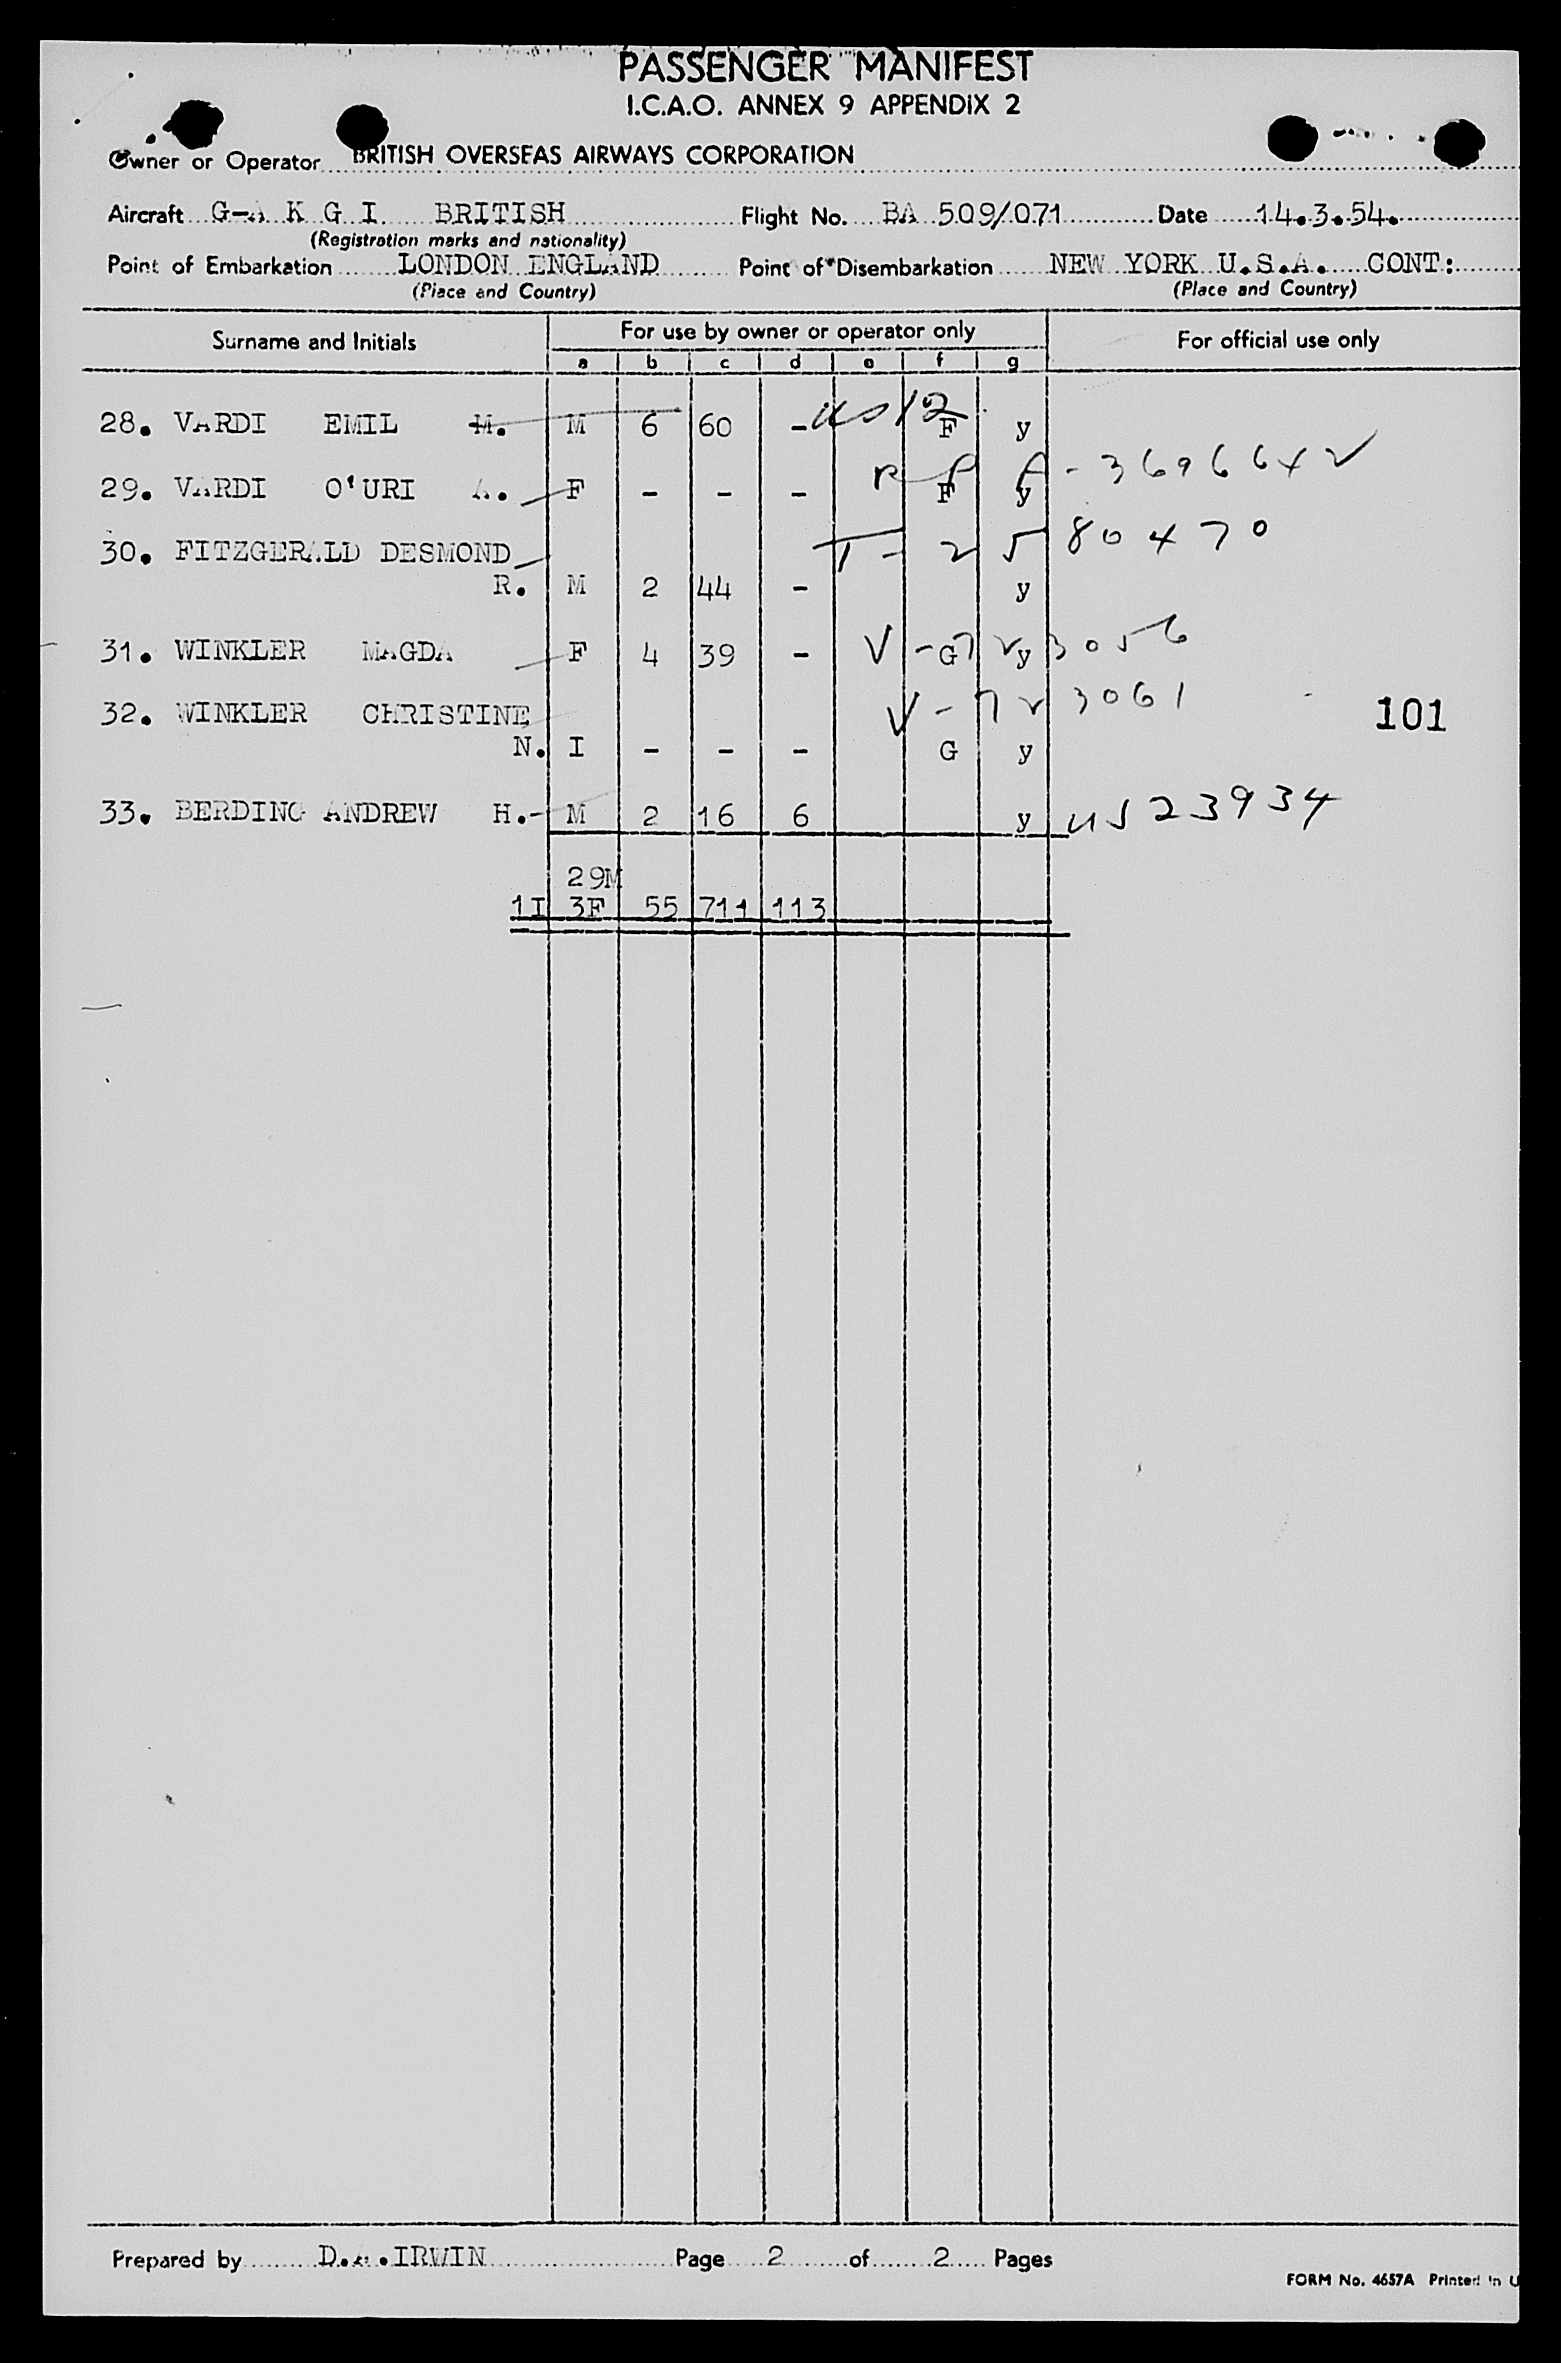 PASSENGER MANIFEST
I.C.A.O. ANNEX 9 APPENDIX 2
Owner or Operator BRITISH OVERSEAS AIRWAYS CORPORATION
Aircraft G-A K G I BRITISH Flight No. BA 509/071 Date 14.3.54.
(Registration marks and nationality)
Point of Embarkation LONDON ENGLAND Point of Disembarkation NEW YORK U.S.A. CONT:
(Place and Country) (Place and Country)
Surname and Initials For use by owner or operator only For official use only
a b c d e f g
28. VARDI EMIL M. M 6 60 - US12 F y
29. VARDI O'URI A. F - - - F y RP A-3696642 ✓
30. FITZGERALD DESMOND T-2580470
R. M 2 44 - y
31. WINKLER MAGDA F 4 39 - G y V-723056
32. WINKLER CHRISTINE V-723061
101
N. I - - - G y
33. BERDING ANDREW H.- M 2 16 6 y US23934
29M
1I 3F 55 711 113
Prepared by IRWIN Page 2 of 2 Pages
FORM No. 4657A Printed in U